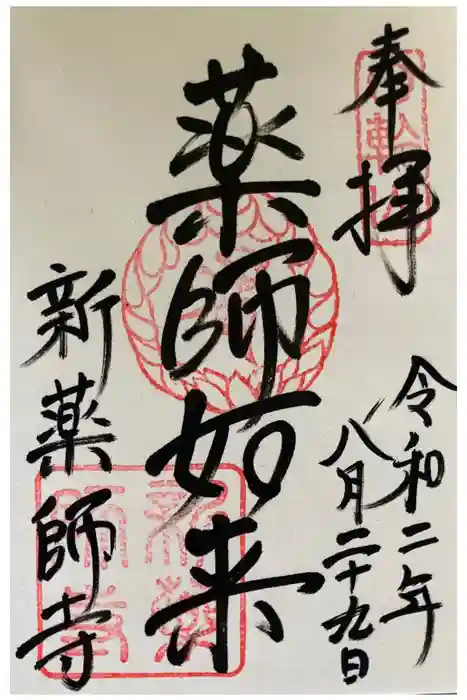 奉拝
令和二年
八月二十九日
薬師如来
新薬師寺
新薬師寺